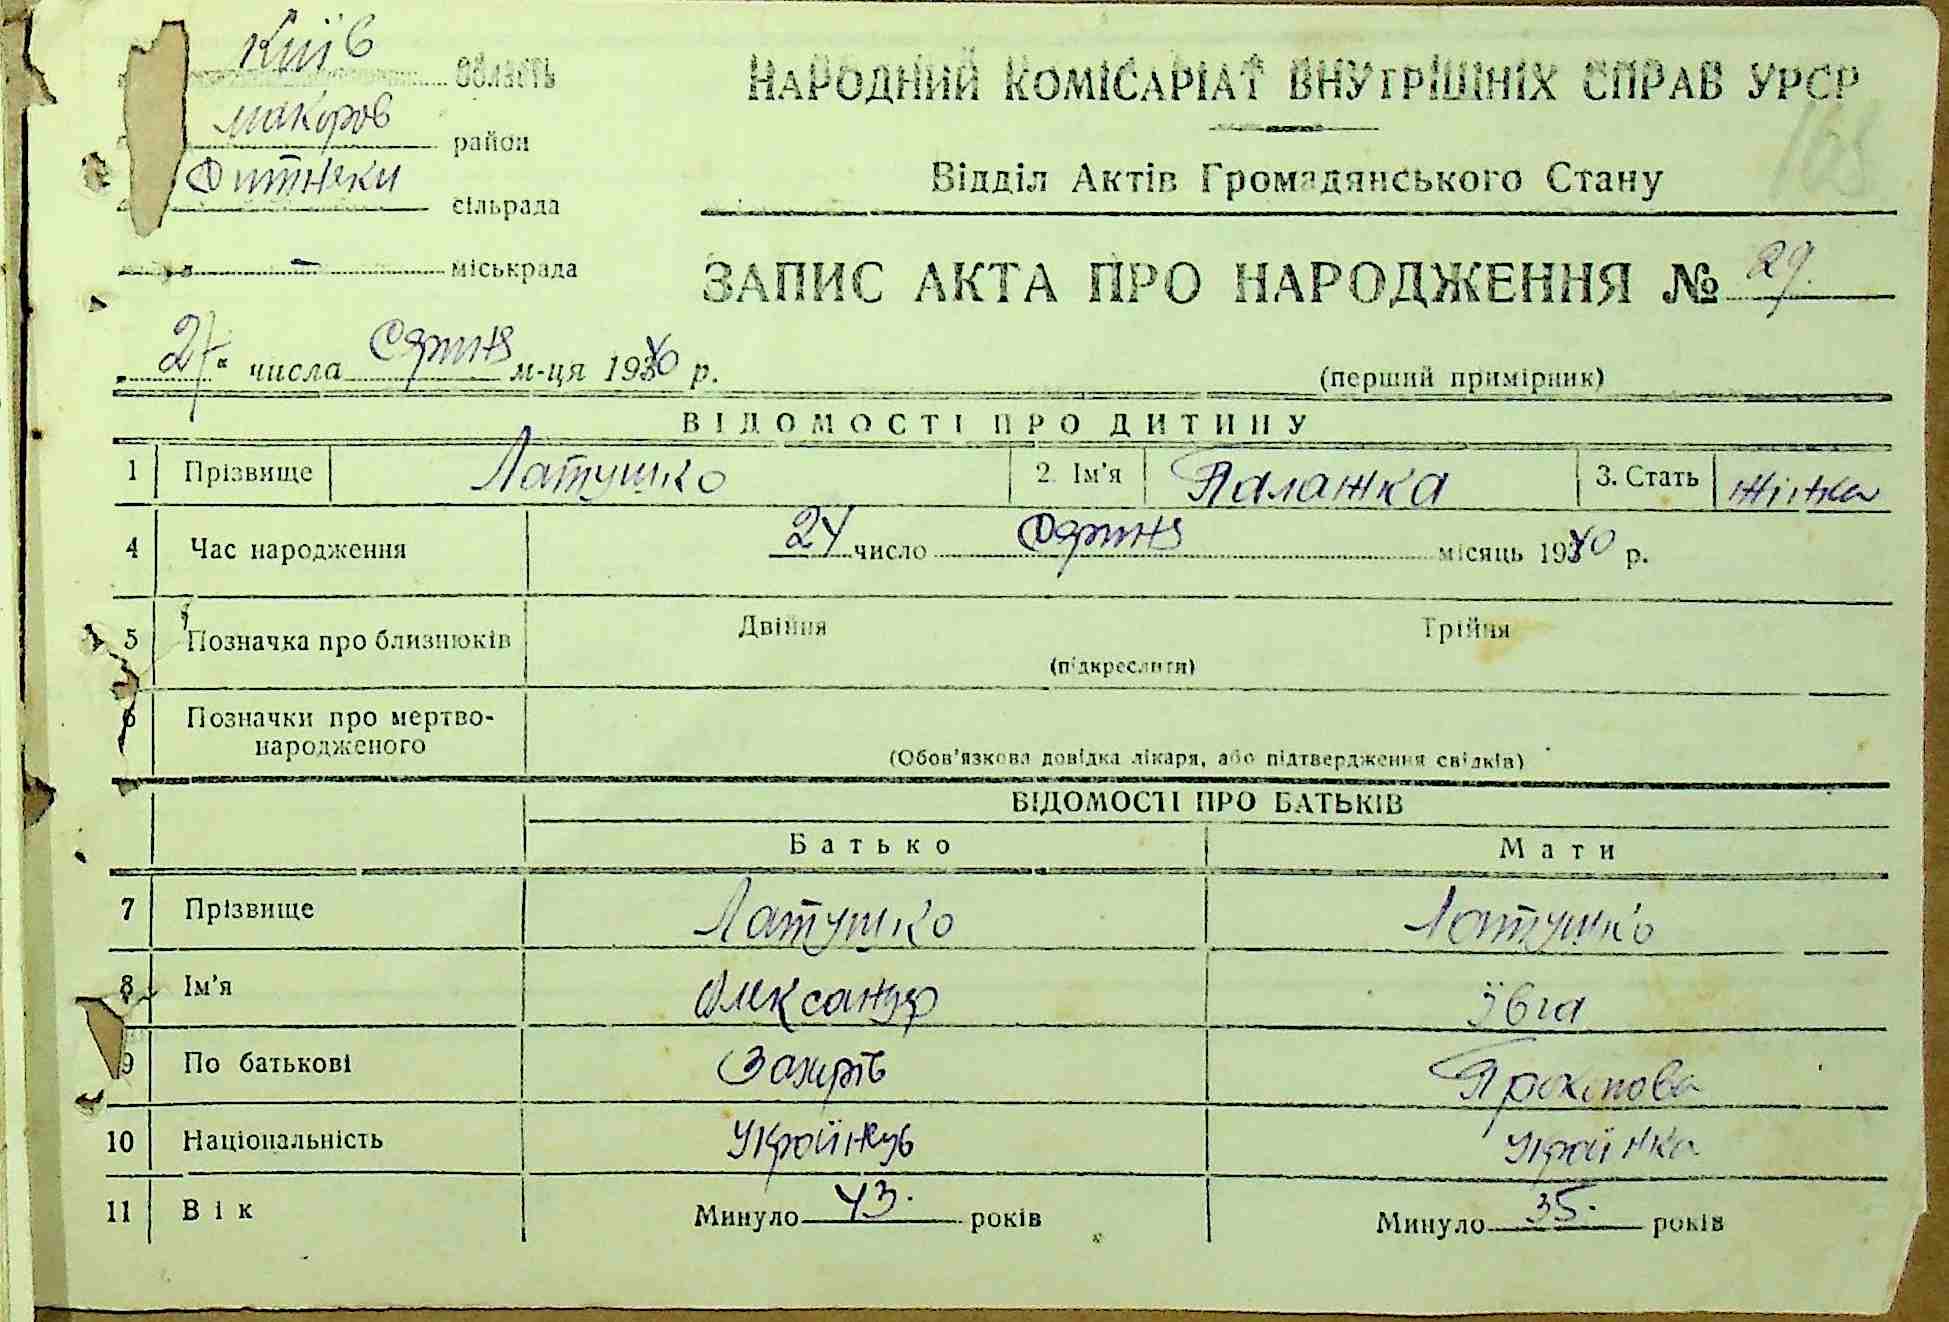 Київ область
макоров район
Фитнеки сільрада
- міськрада
НАРОДНИЙ КОМІСАРІАТ ВНУТРІШНІХ СПРАВ УРСР
168
Відділ Актів Громадянського Стану
ЗАПИС АКТА ПРО НАРОДЖЕННЯ № 29.
27 " числа Серпня м-ця 1940 р.
(перший примірник)
ВІДОМОСТІ ПРО ДИТИНУ
1 Прізвище Латушко 2. Ім'я Палажка 3. Стать жінка
4 Час народження 24 число Серпня місяць 1940 р.
5 Позначка про близнюків Двійня Трійня
(підкреслити)
6 Позначки про мертво-
народженого
(Обов'язкова довідка лікаря, або підтвердження свідків)
ВІДОМОСТІ ПРО БАТЬКІВ
Батько Мати
7 Прізвище Латушко Латушко
8 Ім'я Олександр Ївга
9 По батькові Захрів Прокопова
10 Національність Українць Українка
11 Вік Минуло 43. років Минуло 35. років